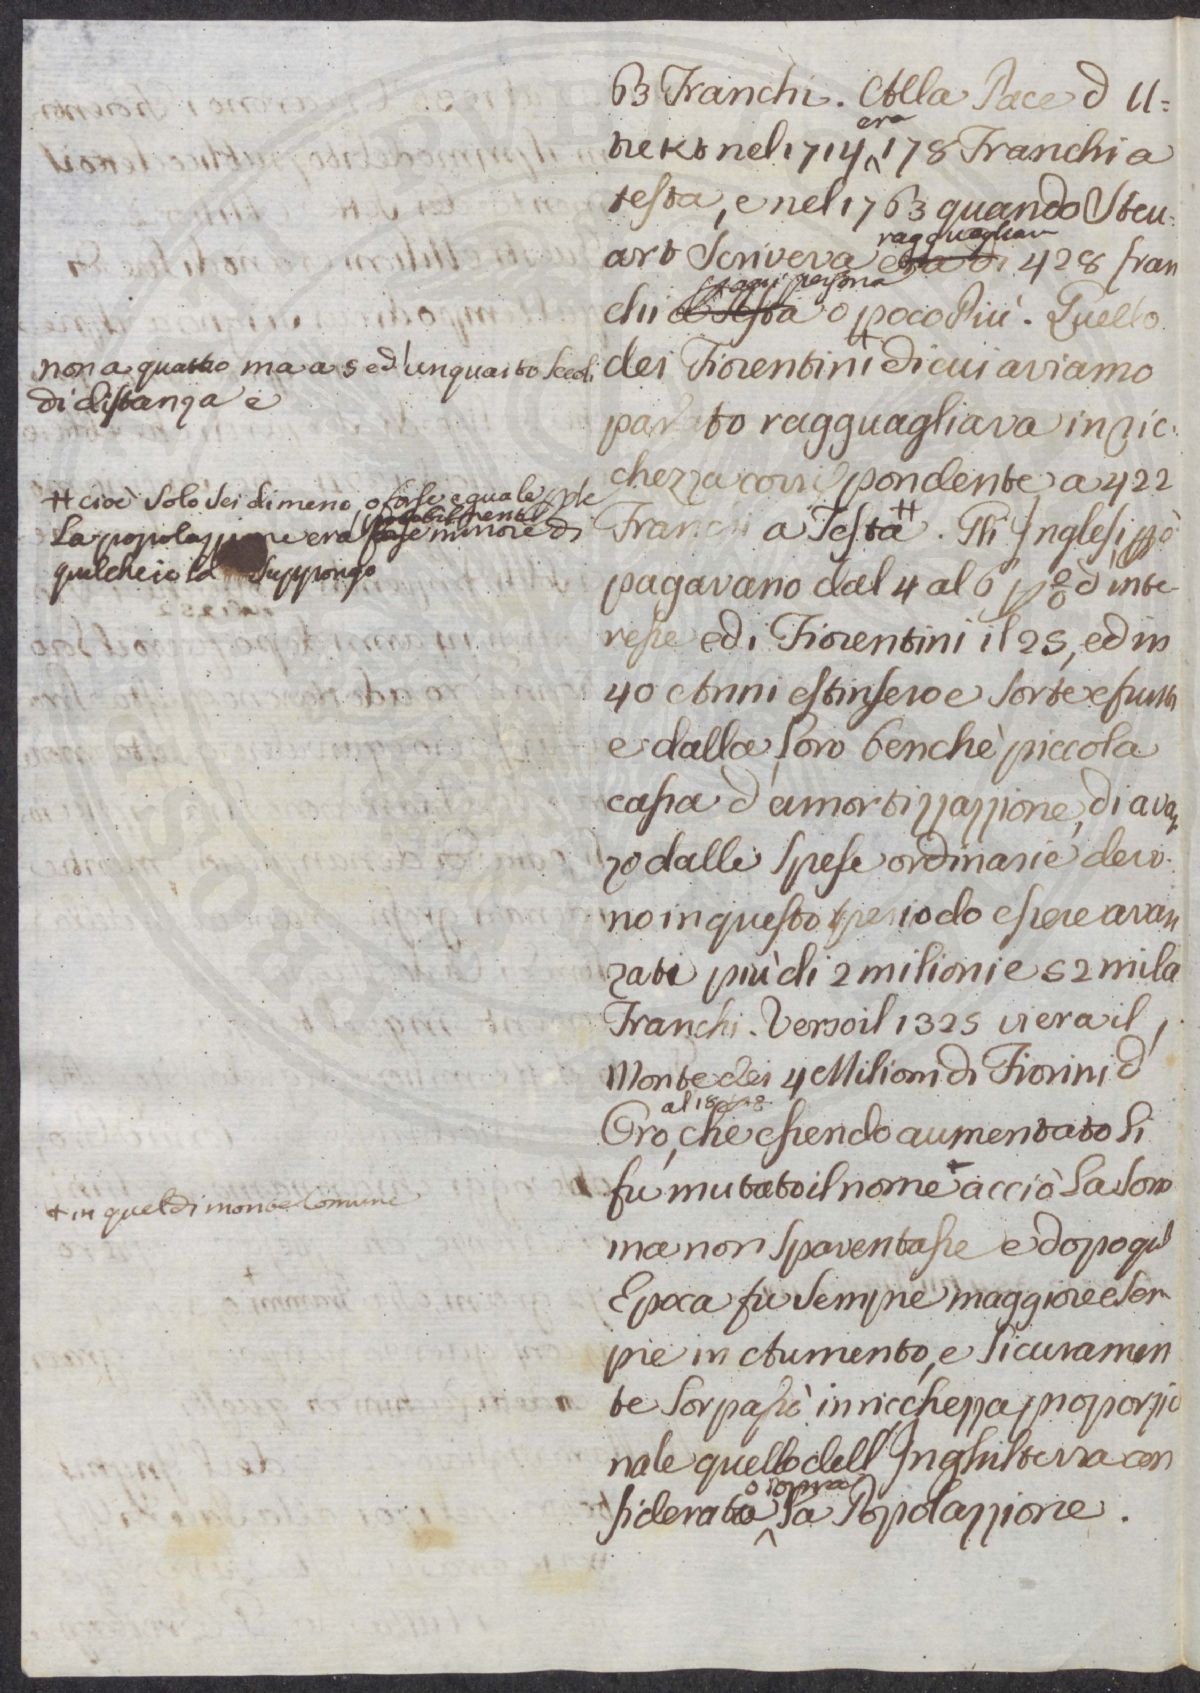 63 Franchi. Alla Pace d' U=
trekt nel 1714 era 178 Franchi a
testa, e nel 1763 quando Steu-
art scriveva era di ragguagliava 428 fran
chi a testa per ogni persona o poco più. Quello
dei Fiorentini di cui aviamo
parlato ragguagliava in ric-
chezza corrispondente a 422
Franchi a Testa #. Gli Inglesi però
pagavano dal 4 al 6 p% d'inte-
resse ed i Fiorentini il 25, ed in
40 Anni estinsero e sorte e frutti
e dalla loro benchè piccola
cassa d'amortizzazzione, di avan
zo dalle spese ordinarie devo-
no in questo periodo essere avan
zati più di 2 milioni e 52 mila
Franchi. Verso il 1325 vi era il
Monte dei 4 Milioni di Fiorini d'
Oro, al 18 che essendo aumentato si
fu mutato il nome + acciò la som
ma non spaventasse e dopo qu.
Epoca fu sempre maggiore e sem
pre in Aumento, e sicuramen
te sorpassò in ricchezza proporzio
nale quello dell'Inghilterra con
siderato o sopra la Popolazzione.
non a quattro ma a 5 ed un quarto secoli
di distanza e
# cioè solo sei di meno, o forse eguale
La popolazzione era forse probabilmente minore di
quelche io la suppongo
+ in quel di monte Comune